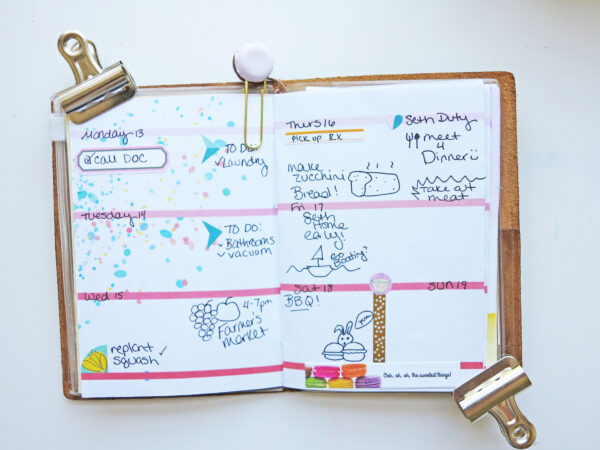 Monday 13
@ Call DOC
TO DO:
✓Laundry
Tuesday 14
TO DO:
✓Bathrooms
✓vacuum
Wed 15
4-7pm
Farmer's
Market
replant ✓
Squash
Thurs 16
Pick up RX......
Seth Duty
meet
4
Dinner
make
zucchini
Bread!
✓Take out
meat
Fri 17
Seth
Home
early!
Go
Boating?
Sat 18
BBQ!
Sun 19
Ooh, oh, oh, the sweetest things!